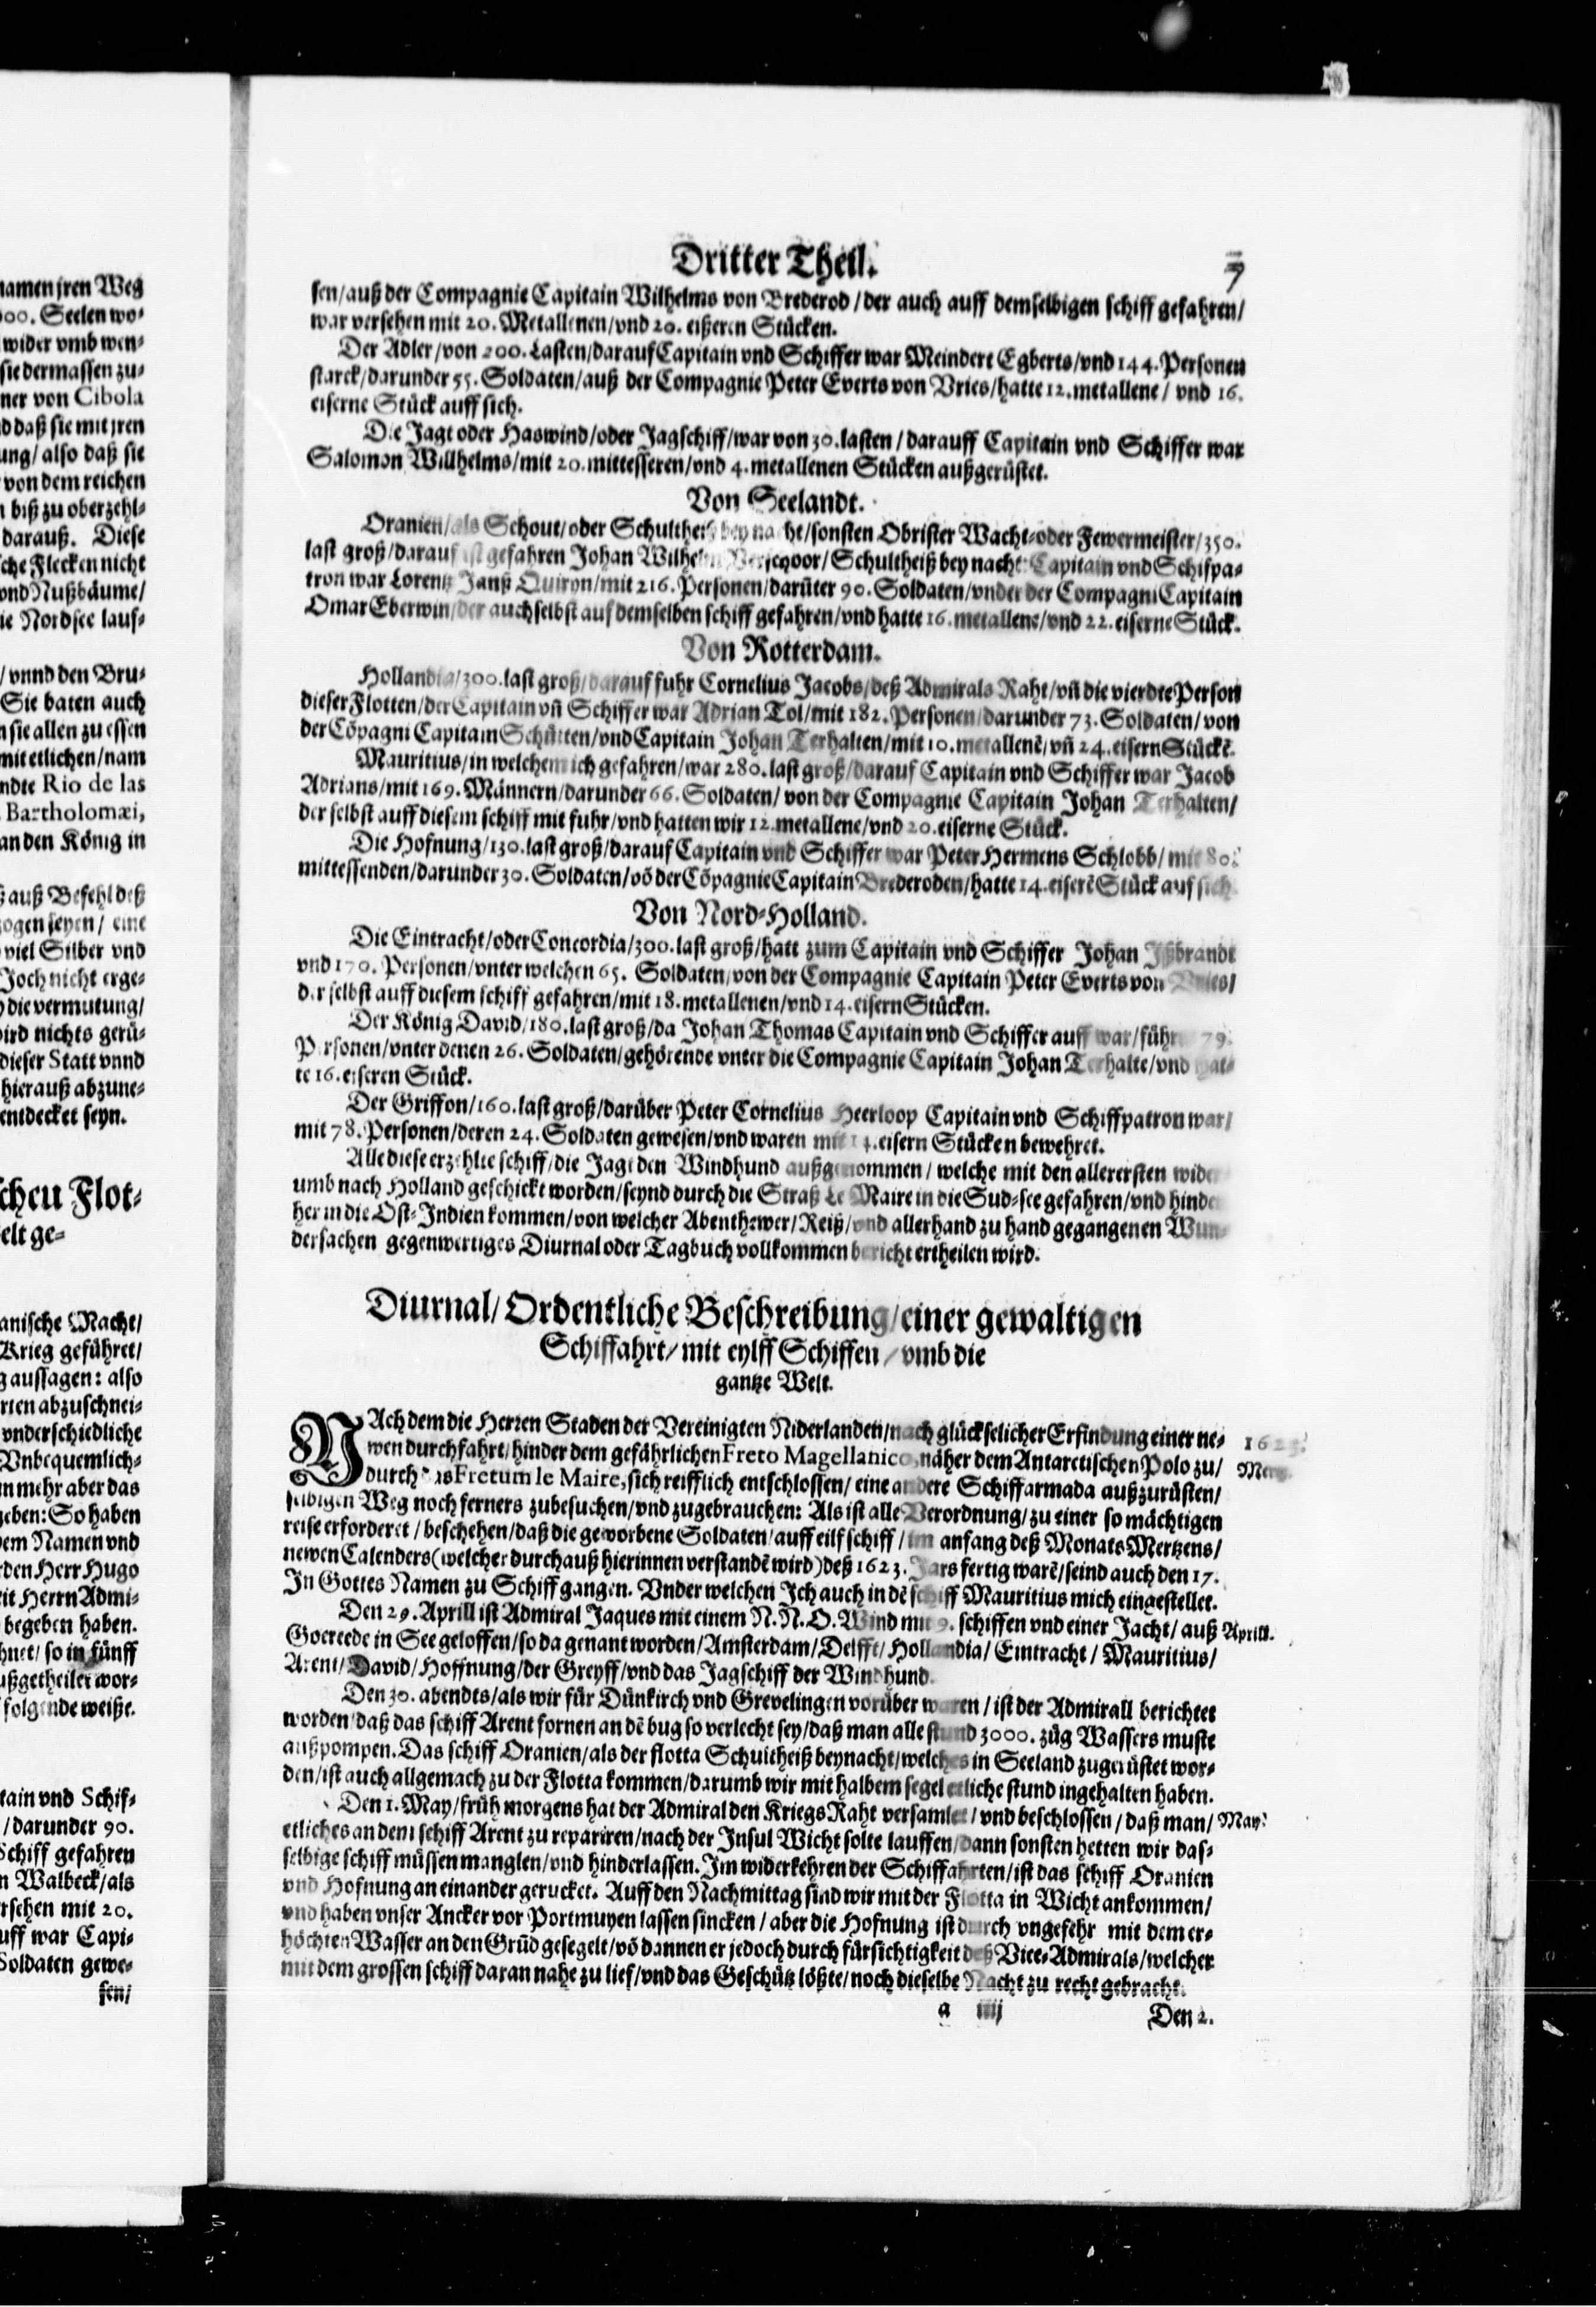 namen jren Weg
00. Seelen wo-
wider vmb wen-
sie dermassen zu-
ner von Cibola
d daß sie mit jren
ung/ also daß sie
von dem reichen
biß zu oberzehl-
darauß. Diese
che Flecken nicht
vnd Nußbäume/
ie Nordsee lauf-
/ vnnd den Bru-
Sie baten auch
n sie allen zu essen
mit etlichen/ nam
ndte Rio de las
Bartholomæi,
an den König in
auß Befehl deß
zogen seyen/ eine
viel Silber vnd
Joch nicht erge-
die vermutung/
ird nichts gerü-
dieser Statt vnnd
hierauß abzune-
entdecket seyn.
schen Flot-
elt ge-
anische Macht/
Krieg geführet/
g aussagen: also
rten abzuschnei-
vnderschiedliche
Vnbequemlich-
n mehr aber das
geben: So haben
em Namen vnd
rden Herr Hugo
it Herrn Admi-
begeben haben.
hnet/ so in fünff
ußgetheilet wor-
folgende weiße.
tain vnd Schif-
/ darunder 90.
Schiff gefahren
n Walbeck/ als
rsehen mit 20.
uff war Capi-
Soldaten gewe-
sen/
Dritter Theil. 7
sen/ auß der Compagnie Capitain Wilhelms von Brederod / der auch auff demselbigen schiff gefahren/
war versehen mit 20. Metallenen/ vnd 20. eißeren Stücken.
Der Adler/ von 200. Lasten/ darauf Capitain vnd Schiffer war Meindert Egberts/ vnd 144. Personen
starck/ darunder 55. Soldaten/ auß der Compagnie Peter Everts von Vries/ hatte 12. metallene/ vnd 16.
eiserne Stück auff sich.
Die Jagt oder Haswind/ oder Jagschiff/ war von 30. lasten / darauff Capitain vnd Schiffer war
Salomon Willhelms/ mit 20. mittesseren/ vnd 4. metallenen Stücken außgerüstet.
Von Seelandt.
Oranien/ als Schout/ oder Schultheiß bey nacht/ sonsten Obrister Wacht-oder Fewermeister/ 350.
last groß/ darauf ist gefahren Johan Wilhelm Verschoor/ Schultheiß bey nacht: Capitain vnd Schifpa-
tron war Lorentz Janß Quiryn/ mit 216. Personen/ darũter 90. Soldaten/ vnder der Compagni Capitain
Omar Eberwin/ der auch selbst auf demselben schiff gefahren/ vnd hatte 16. metallene/ vnd 22. eiserne Stück.
Von Rotterdam.
Hollandia/ 300. last groß/ darauf fuhr Cornelius Jacobs/ deß Admirals Raht/ vñ die vierdte Person
dieser Flotten/ der Capitain vñ Schiffer war Adrian Tol/ mit 182. Personen/ darunder 73. Soldaten/ von
der Cõpagni Capitain Schütten/ vnd Capitain Johan Terhalten/ mit 10. metallenẽ/ vñ 24. eisern Stückẽ.
Mauritius/ in welchem ich gefahren/ war 280. last groß/ darauf Capitain vnd Schiffer war Jacob
Adrians/ mit 169. Männern/ darunder 66. Soldaten/ von der Compagnie Capitain Johan Terhalten/
der selbst auff diesem schiff mit fuhr/ vnd hatten wir 12. metallene/ vnd 20. eiserne Stück.
Die Hofnung/ 130. last groß/ darauf Capitain vnd Schiffer war Peter Hermens Schlobb/ mit 80.
mittessenden/ darunder 30. Soldaten/ võ der Cõpagnie Capitain Brederoden/ hatte 14. eiserẽ Stück auf sich.
Von Nord-Holland.
Die Eintracht/ oder Concordia/ 300. last groß/ hatt zum Capitain vnd Schiffer Johan Jßbrandt
vnd 170. Personen/ vnter welchen 65. Soldaten/ von der Compagnie Capitain Peter Everts von Vries/
der selbst auff diesem schiff gefahren/ mit 18. metallenen/ vnd 14. eisern Stücken.
Der König David/ 180. last groß/ da Johan Thomas Capitain vnd Schiffer auff war/ führ 79.
Personen/ vnter denen 26. Soldaten/ gehörende vnter die Compagnie Capitain Johan Terhalte/ vnd hat-
te 16. eiseren Stück.
Der Griffon/ 160. last groß/ darüber Peter Cornelius Heerloop Capitain vnd Schiffpatron war/
mit 78. Personen/ deren 24. Soldaten gewesen/ vnd waren mit 14. eisern Stücken bewehret.
Alle diese erzehlte schiff/ die Jagt den Windhund außgenommen / welche mit den allerersten wider
umb nach Holland geschickt worden/ seynd durch die Straß Le Maire in die Sud-see gefahren/ vnd hinder
her in die Ost-Indien kommen/ von welcher Abenthewer/ Reiß/ vnd allerhand zu hand gegangenen Wun-
dersachen gegenwertiges Diurnal oder Tagbuch vollkommen bericht ertheilen wird.
Diurnal/ Ordentliche Beschreibung/ einer gewaltigen
Schiffahrt/ mit eylff Schiffen / vmb die
gantze Welt.
NAch dem die Herren Staden der Vereinigten Niderlanden/ nach glückselicher Erfindung einer ne- 1623.
wen durchfahrt/ hinder dem gefährlichen Freto Magellanico, näher dem Antarctischen Polo zu/ Mertz.
durch das Fretum le Maire, sich reifflich entschlossen/ eine andere Schiffarmada außzurüsten/
selbigen Weg noch ferners zubesuchen/ vnd zugebrauchen: Als ist alle Verordnung/ zu einer so mächtigen
reise erforderet / beschehen/ daß die geworbene Soldaten/ auff eilf schiff / im anfang deß Monats Mertzens/
newen Calenders (welcher durchauß hierinnen verstandẽ wird) deß 1623. Jars fertig warẽ/ seind auch den 17.
In Gottes Namen zu Schiff gangen. Vnder welchen Ich auch in dẽ schiff Mauritius mich eingestellet.
Den 29. Aprill ist Admiral Jaques mit einem N. N. O. Wind mit 9. schiffen vnd einer Jacht/ auß Aprill.
Goereede in See geloffen/ so da genant worden/ Amsterdam/ Delfft/ Hollandia/ Eintracht / Mauritius/
Arent/ David/ Hoffnung/ der Greyff/ vnd das Jagschiff der Windhund.
Den 30. abendts/ als wir für Dünkirch vnd Grevelingen vorüber waren / ist der Admirall berichtet
worden/ daß das schiff Arent fornen an dẽ bug so verlecht sey/ daß man alle stund 3000. züg Wassers muste
außpompen. Das schiff Oranien/ als der flotta Schultheiß beynacht/ welches in Seeland zugerüstet wor-
den/ ist auch allgemach zu der Flotta kommen/ darumb wir mit halbem segel etliche stund ingehalten haben.
Den 1. May/ früh morgens hat der Admiral den Kriegs Raht versamlet / vnd beschlossen / daß man/ May.
etliches an dem schiff Arent zu repariren/ nach der Insul Wicht solte lauffen/ dann sonsten hetten wir das-
selbige schiff müssen manglen/ vnd hinderlassen. Im widerkehren der Schiffahrten/ ist das schiff Oranien
vnd Hofnung an einander gerucket. Auff den Nachmittag sind wir mit der Flotta in Wicht ankommen/
vnd haben vnser Ancker vor Portmuyen lassen sincken / aber die Hofnung ist durch vngefehr mit dem er-
höchten Wasser an den Grũd gesegelt/ võ dannen er jedoch durch fürsichtigkeit deß Vice-Admirals/ welcher
mit dem grossen schiff daran nahe zu lief/ vnd das Geschütz lößte/ noch dieselbe Nacht zu recht gebracht.
a iiij Den 2.